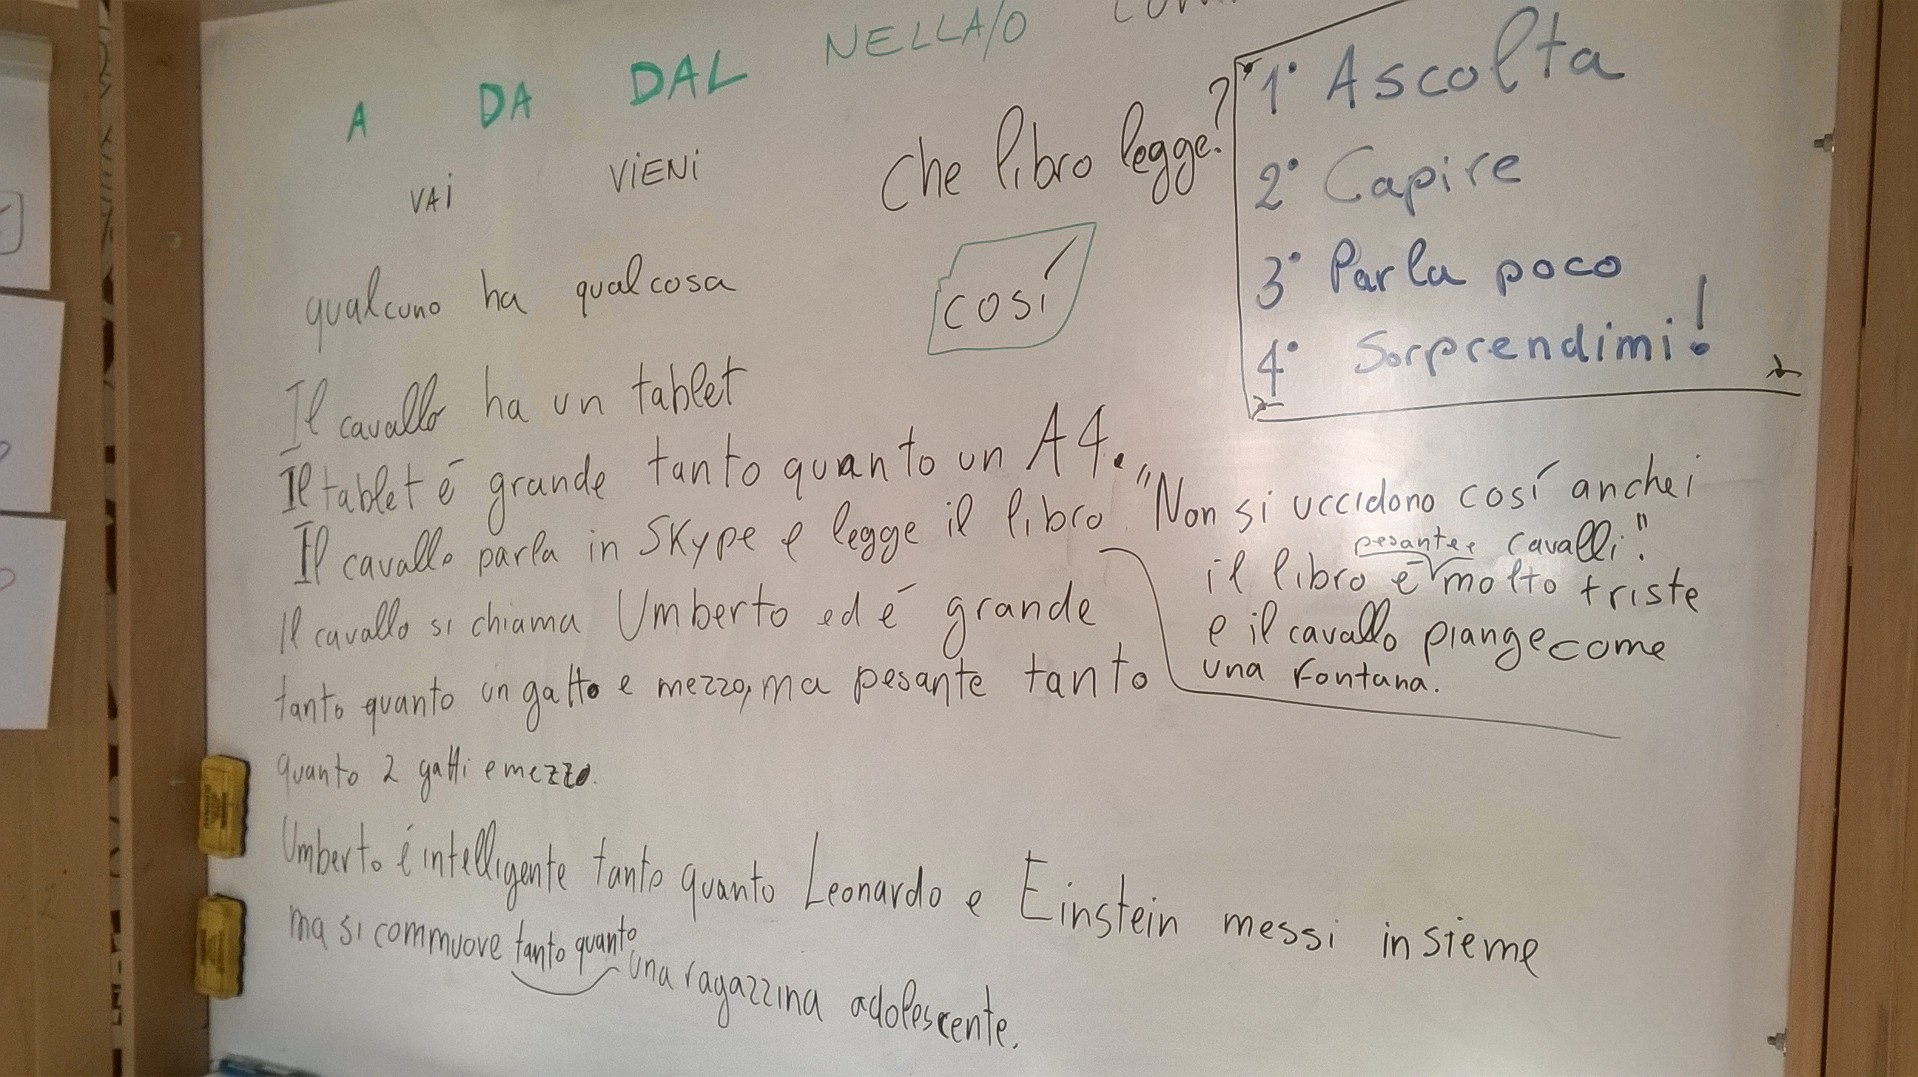 A DA DAL NELLA/O
VAi ViENi
Che libro legge?
COSÍ
1° Ascolta
2° Capire
3° Parla poco
4° Sorprendimi!
qualcuno ha qualcosa
Il cavallo ha un tablet
Il tablet é grande tanto quanto un A4.
Il cavallo parla in Skype e legge il libro "Non si uccidono cosí anche i
cavalli."
pesante e
il libro é molto triste
e il cavallo piange come
una Fontana.
Il cavallo si chiama Umberto ed é grande
tanto quanto un gatto e mezzo, ma pesante tanto
quanto 2 gatti e mezzo.
Umberto é intelligente tanto quanto Leonardo e Einstein messi insieme
ma si commuove tanto quanto una ragazzina adolescente.